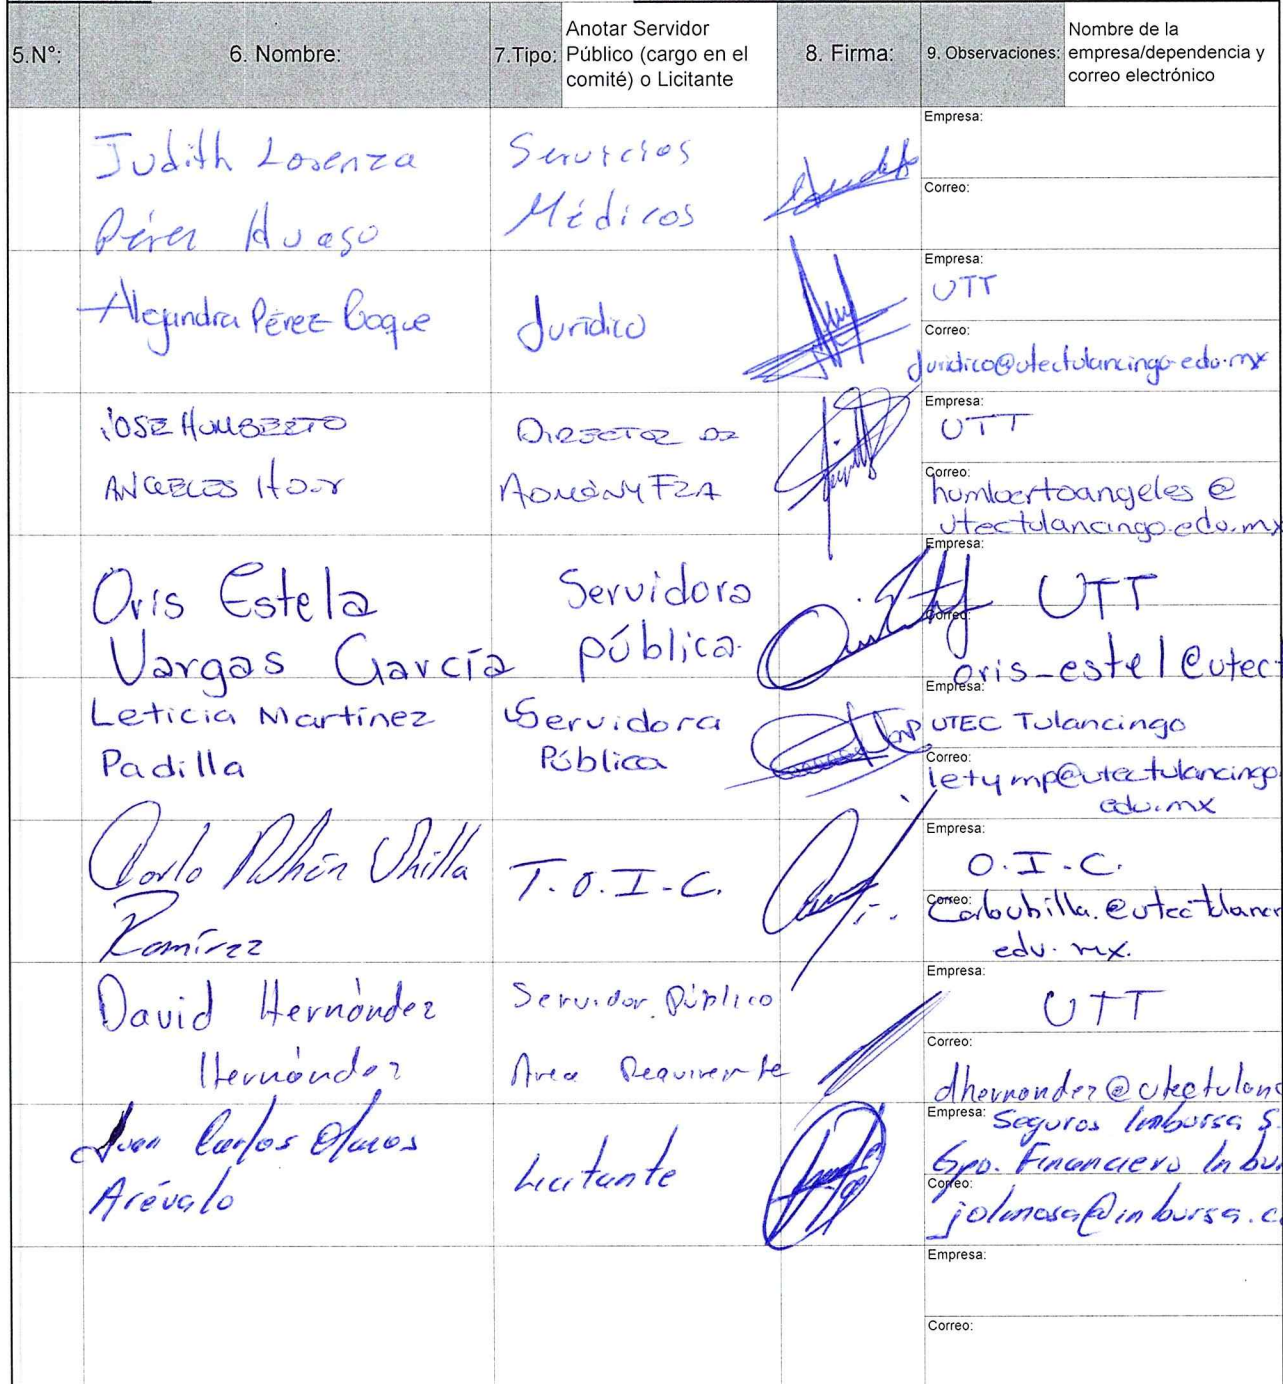 5.N°:
6. Nombre:
7.Tipo:
Anotar Servidor
Público (cargo en el
comité) o Licitante
8. Firma:
9. Observaciones:
Nombre de la
empresa/dependencia y
correo electrónico
Judith Lorenza
Pérez Huaso
Servicios
Médicos
Empresa:
Correo:
Alejandra Pérez Coque
Jurídico
Empresa:
UTT
Correo:
Juridico@utectulancingo.edu.mx
JOSE HUMBERTO
ANGELES
DIRECTOR DE
ADMON Y FZA
Empresa:
UTT
Correo:
humbertoangeles@
utectulancingo.edu.mx
Oris Estela
Vargas García
Servidora
pública.
Empresa:
UTT
Correo:
oris-estel@utect
Leticia Martínez
Padilla
Servidora
Pública
Empresa:
UTEC Tulancingo
Correo:
letymp@utectulancingo.
edu.mx
Carlo Rubén Ubilla
Ramírez
T.O.I.C.
Empresa:
O.I.C.
Correo:
Carloubilla.@utectulanci
edu.mx.
David Hernández
Hernández
Servidor Público
Area Requirente
Empresa:
UTT
Correo:
dhernandez@utectulanc
Juan Carlos Olmos
Arévalo
Licitante
Empresa: Seguros Inbursa S.
Gpo. Financiero Inbur
Correo:
jolmosa@inbursa.co
Empresa:
Correo: